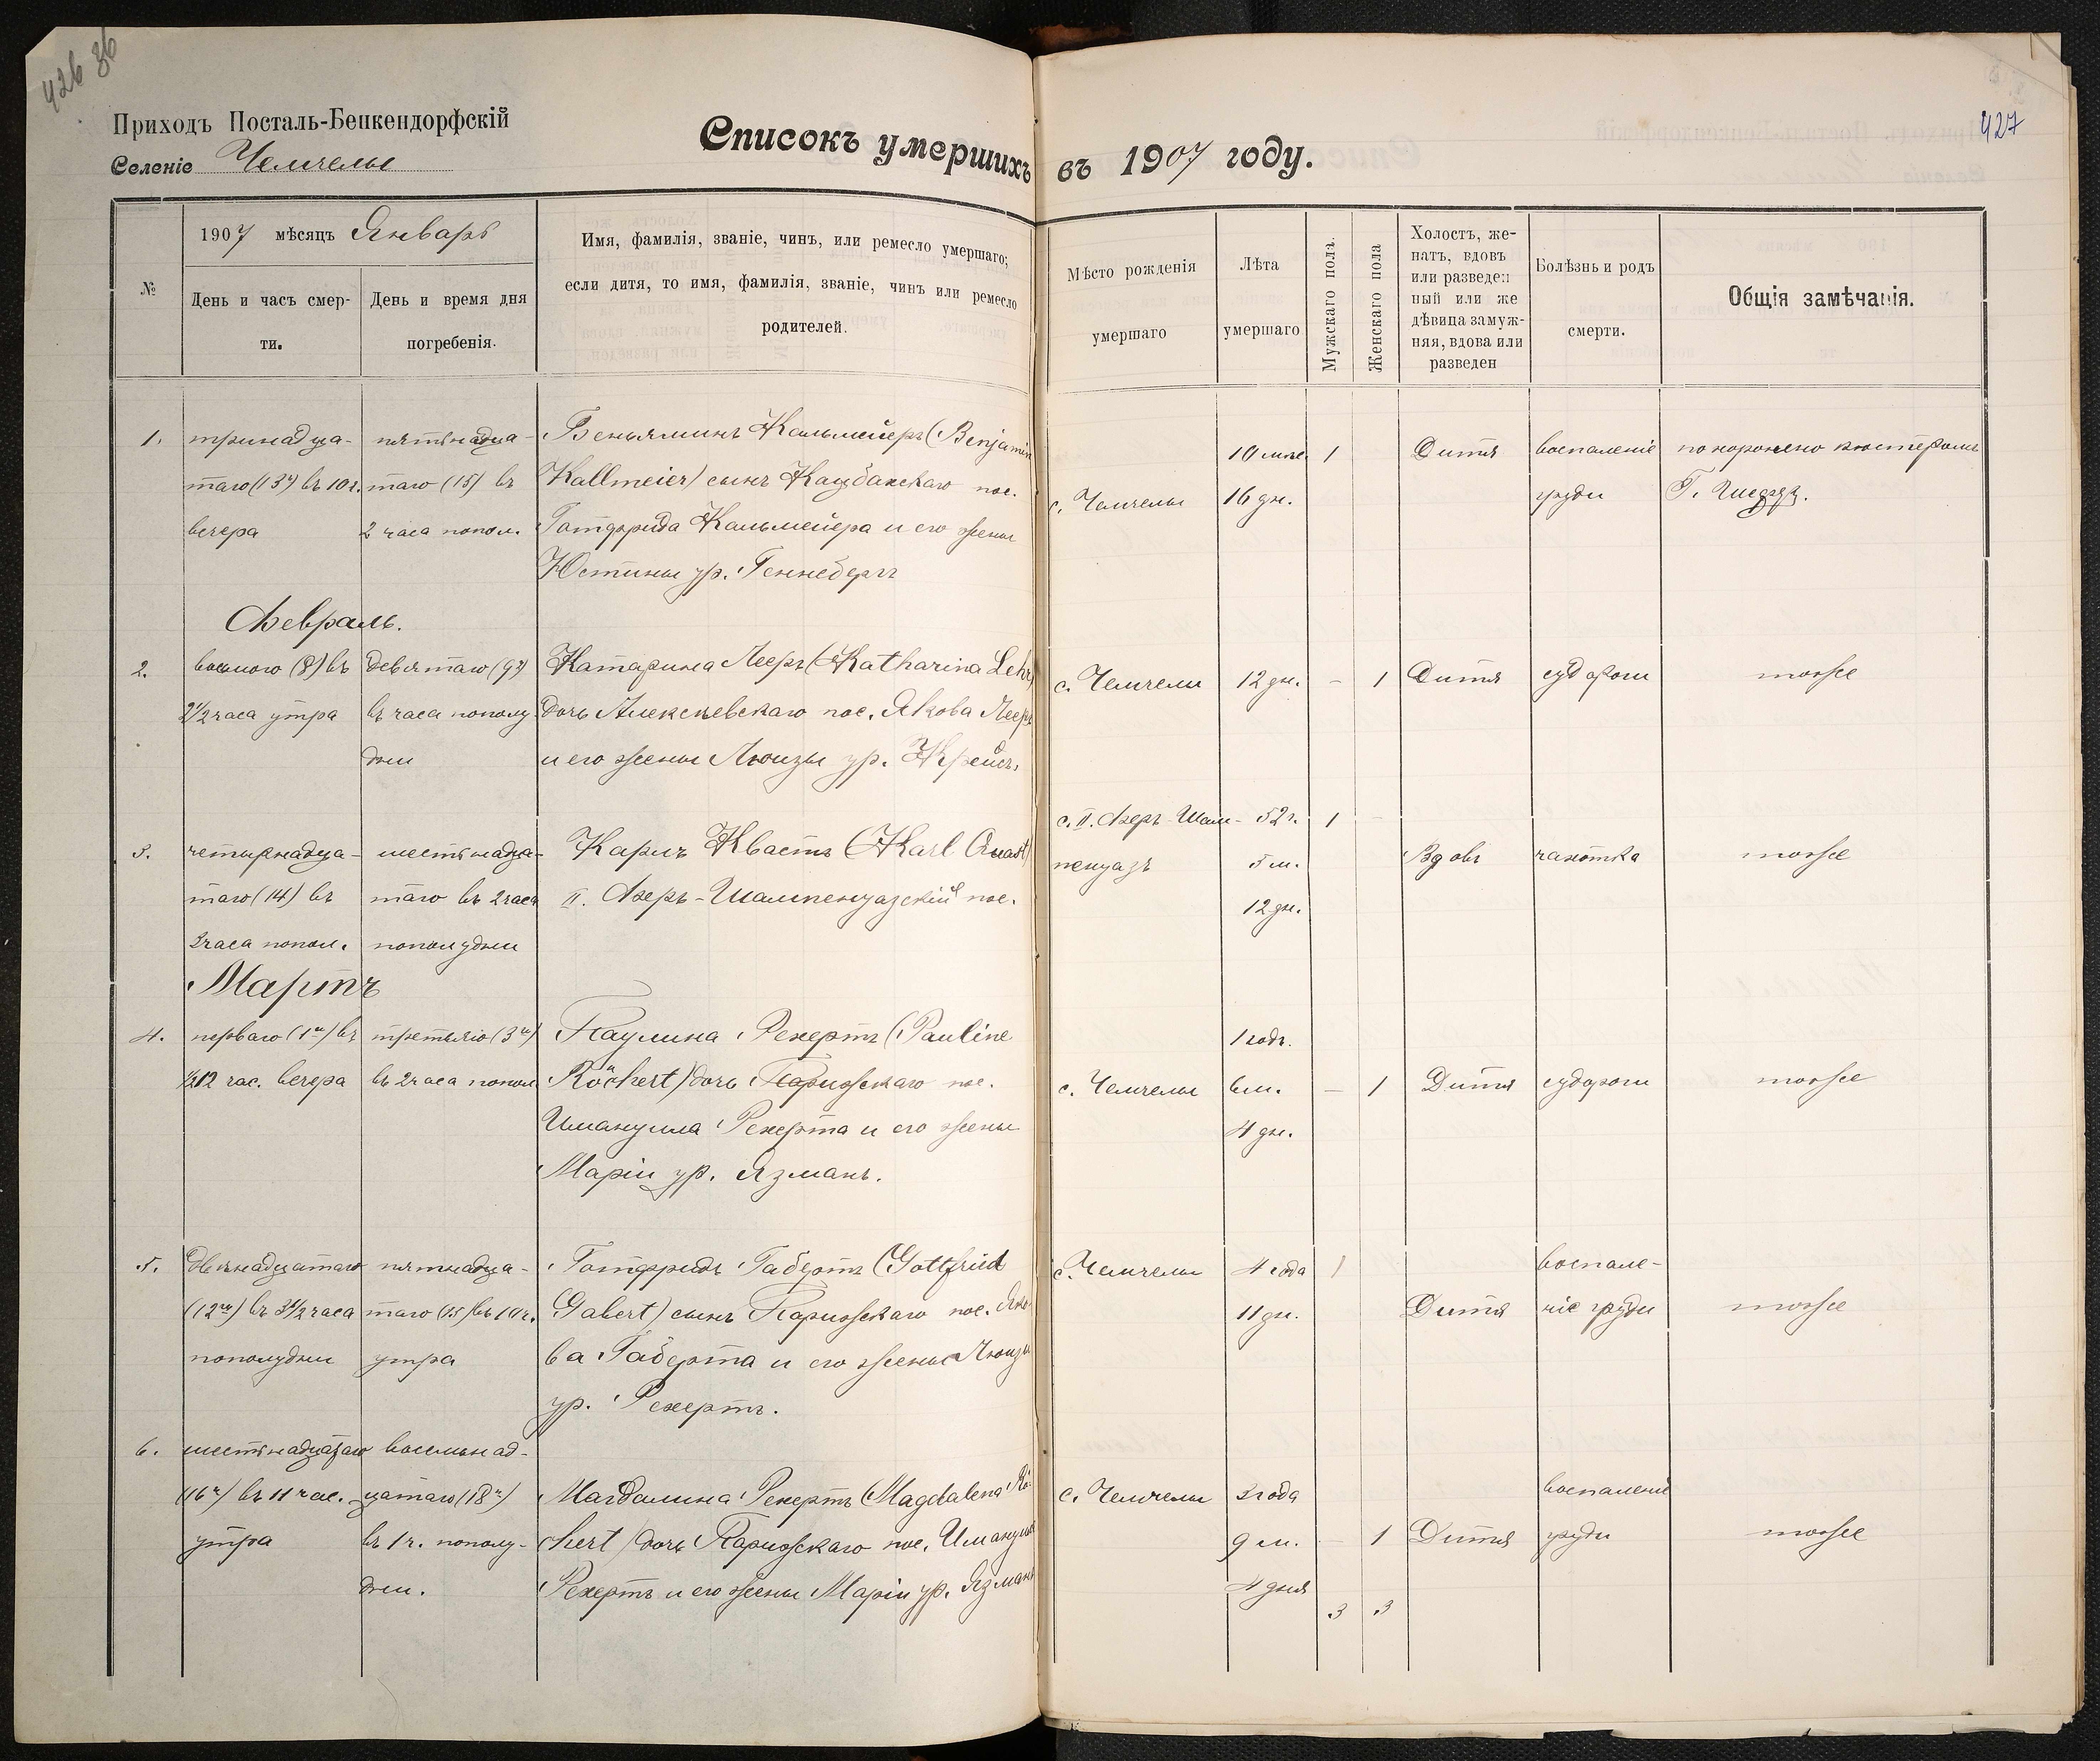 426 86
427
Приходъ Посталь-Бенкендорфскій
Селеніе Чемчелы
Списокъ умершихъ въ 1907 году.
№
1907 мѣсяцъ Январь
День и часъ смер-
ти.
День и время дня
погребенія.
Имя, фамилія, званіе, чинъ, или ремесло умершаго;
если дитя, то имя, фамилія, званіе, чинъ или ремесло
родителей.
Мѣсто рожденія
умершаго
Лѣта
умершаго
Мужскаго пола.
Женскаго пола
Холостъ, же-
натъ, вдовъ
или разведен
ный или же
дѣвица замуж-
няя, вдова или
разведен
Болѣзнь и родъ
смерти.
Общія замѣчанія.
1.
тринадца-
таго (13г) въ 10 ч.
вечера
пятнадца-
таго (15) въ
2 часа попол.
Беньяминъ Кальмейеръ (Benjamin
Kallmeier) сынъ Кацбахскаго пос.
Готфрида Кальмейера и его жены
Юстины ур. Геннебергъ
с. Чемчелы
10 мѣс.
16 дн.
1
Дитя
воспаленіе
груди
похоронено кюстеромъ
Г.
Февраль.
2.
восьмого (8) въ
2 1/2 часа утра
девятаго (9г)
въ часа пополу-
дни
Катарина Лееръ (Katharina Lehr)
дочь Алексѣевскаго пос. Якова Лееръ
и его жены Люизы ур. Крейсъ.
с. Чемчелы
12 дн.
- 1
Дитя
судороги
тоже
3.
четырнадца-
таго (14) въ
3 часа попол.
шестнадца-
таго въ 2 часа
пополудни
Карлъ Квастъ (Karl Quast)
II. Феръ-Шампенуазскій пос.
с. II. Феръ-Шам-
пенуазъ
52 г.
5 м.
12 дн.
1 -
Вдовъ
чахотка
тоже
Мартъ
4.
перваго (1го) въ
1/2 12 час. вечера
третьяго (3го)
въ 2 часа попол
Паулина Рехертъ (Pauline
Röchert) дочь Парижскаго пос.
Имануила Рехерта и его жены
Маріи ур. Язманъ.
с. Чемчелы
1 годъ.
6 м.
4 дн.
- 1
Дитя
судороги
тоже
5.
двѣнадцатаго
(12го) въ 3 1/2 часа
пополудни
пятнадца-
таго (15) въ 10 ч.
утра
Готфридъ Габертъ (Gottfried
Gabert) сынъ Парижскаго пос. Яко-
ва Габерта и его жены Люизы
ур. Рехертъ.
с. Чемчелы
4 года
11 дн.
1
Дитя
воспале-
ніе груди
тоже
6.
шестнадцатаго
(16г) въ 11 час.
утра
восемнад-
цатаго (18г)
въ 1 ч. пополу-
дни.
Магдалина Рехертъ (Magdalena Rö-
chert) дочь Парижскаго пос. Имануила
Рехертъ и его жены Маріи ур. Язманъ
с. Чемчелы
3 года
9 м.
4 дня
- 1
Дитя
воспаленіе
груди
тоже
3 3